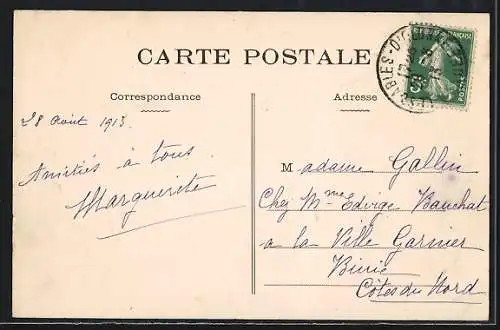 CARTE POSTALE
Correspondance
Adresse
28 Août 1913.
Amitiés à tous
Marguerite
Madame Gallin
Chez Mme Edvige Bauchat
a la Ville Garnier
Binic
Côtes du Nord